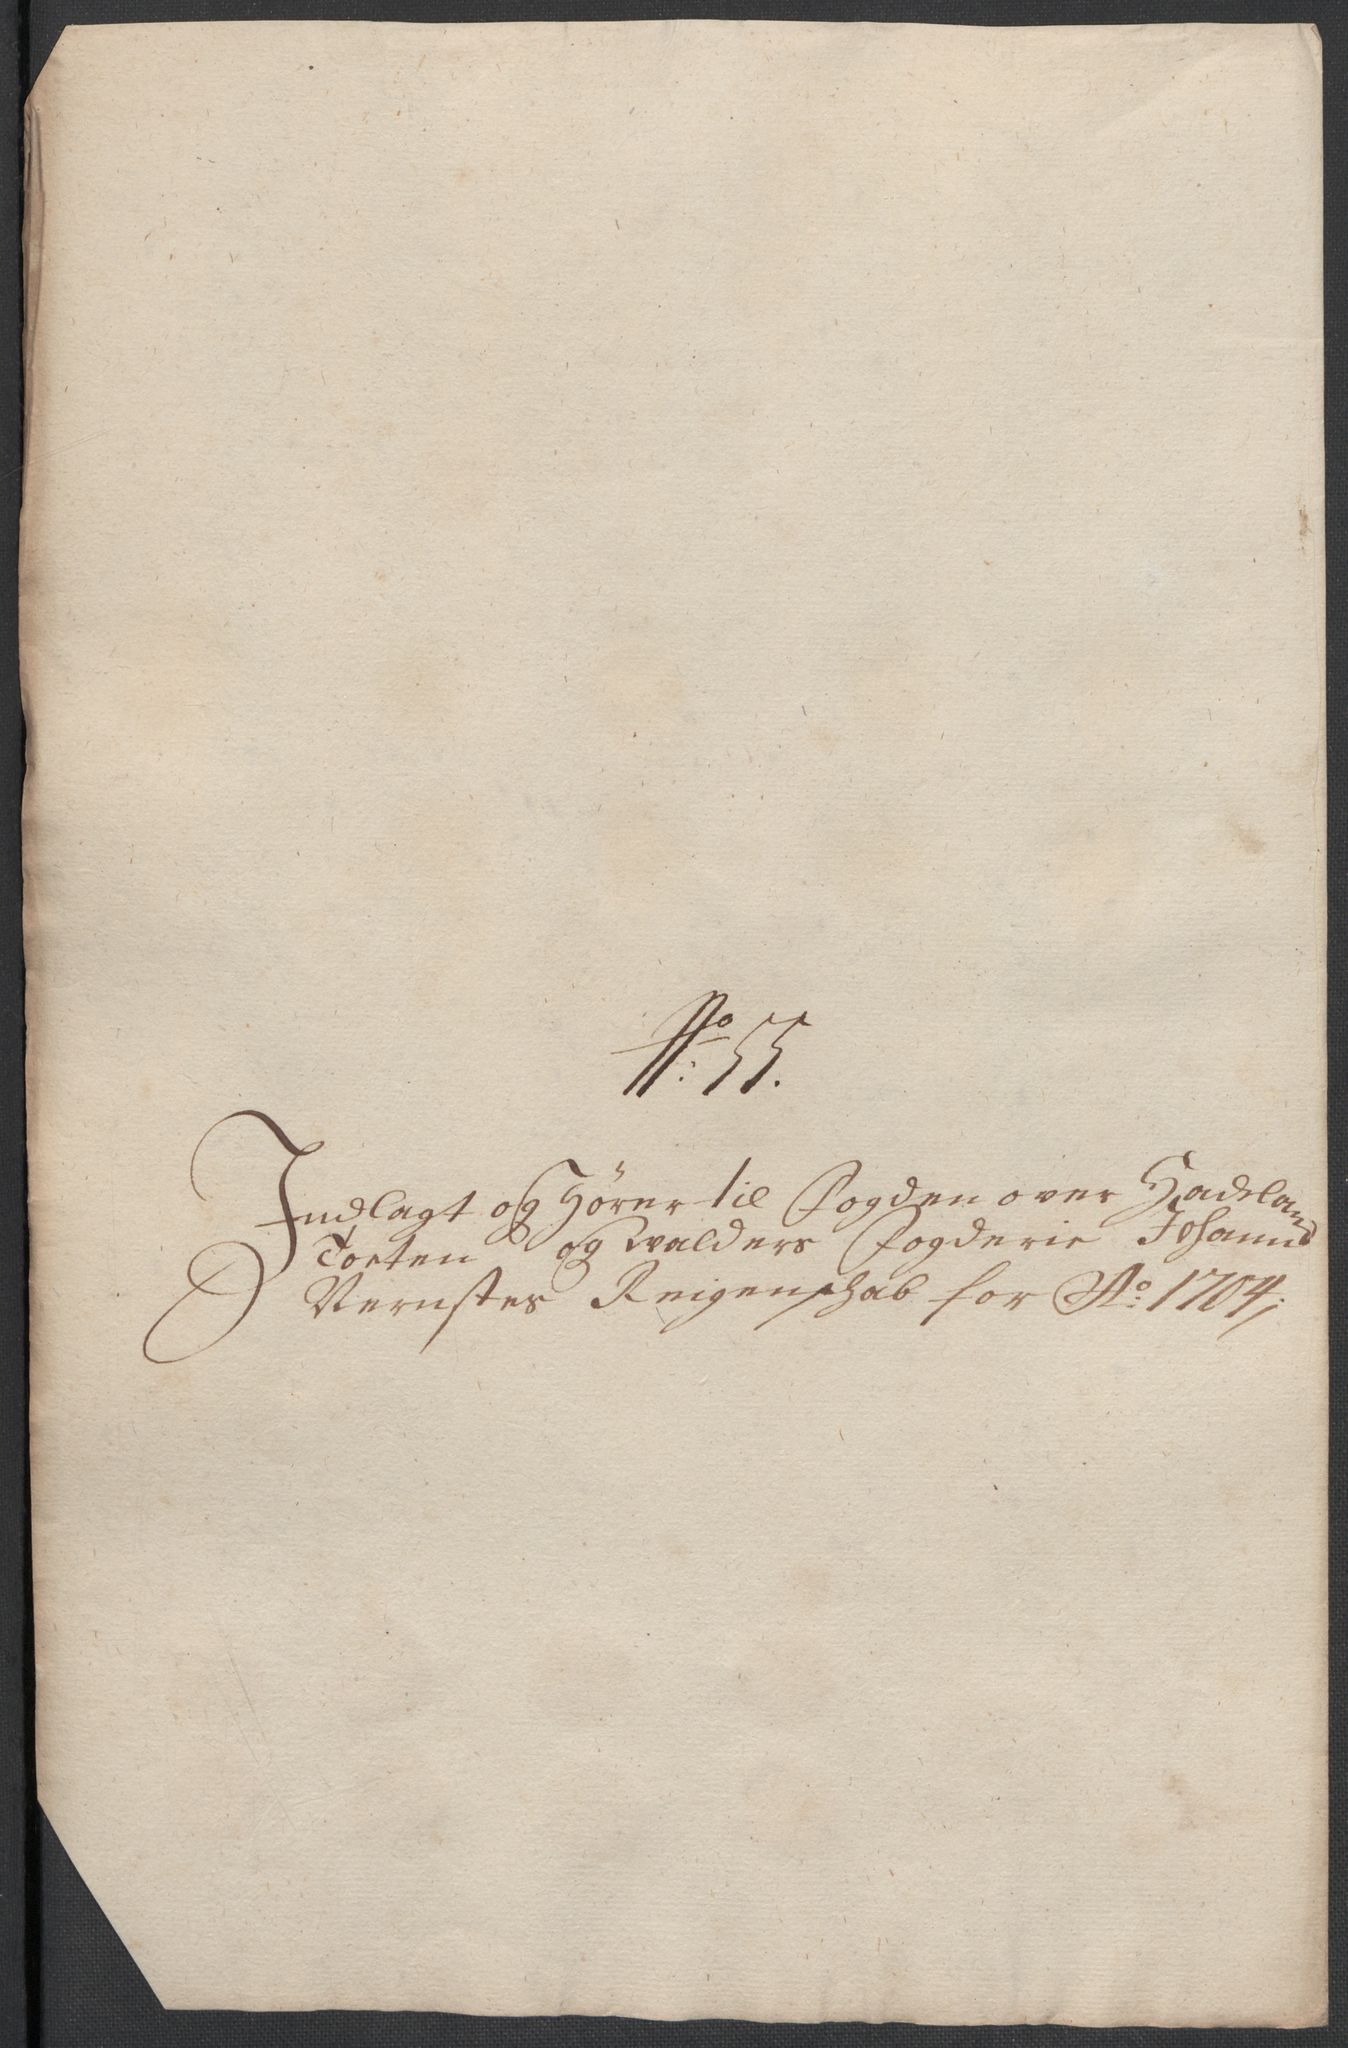 No: 55.
Indlagt og Hører til Fogden over Hadeland
Toeten og walders Fogderie Johann
Vernstes Reigenschab for Ao: 1704,